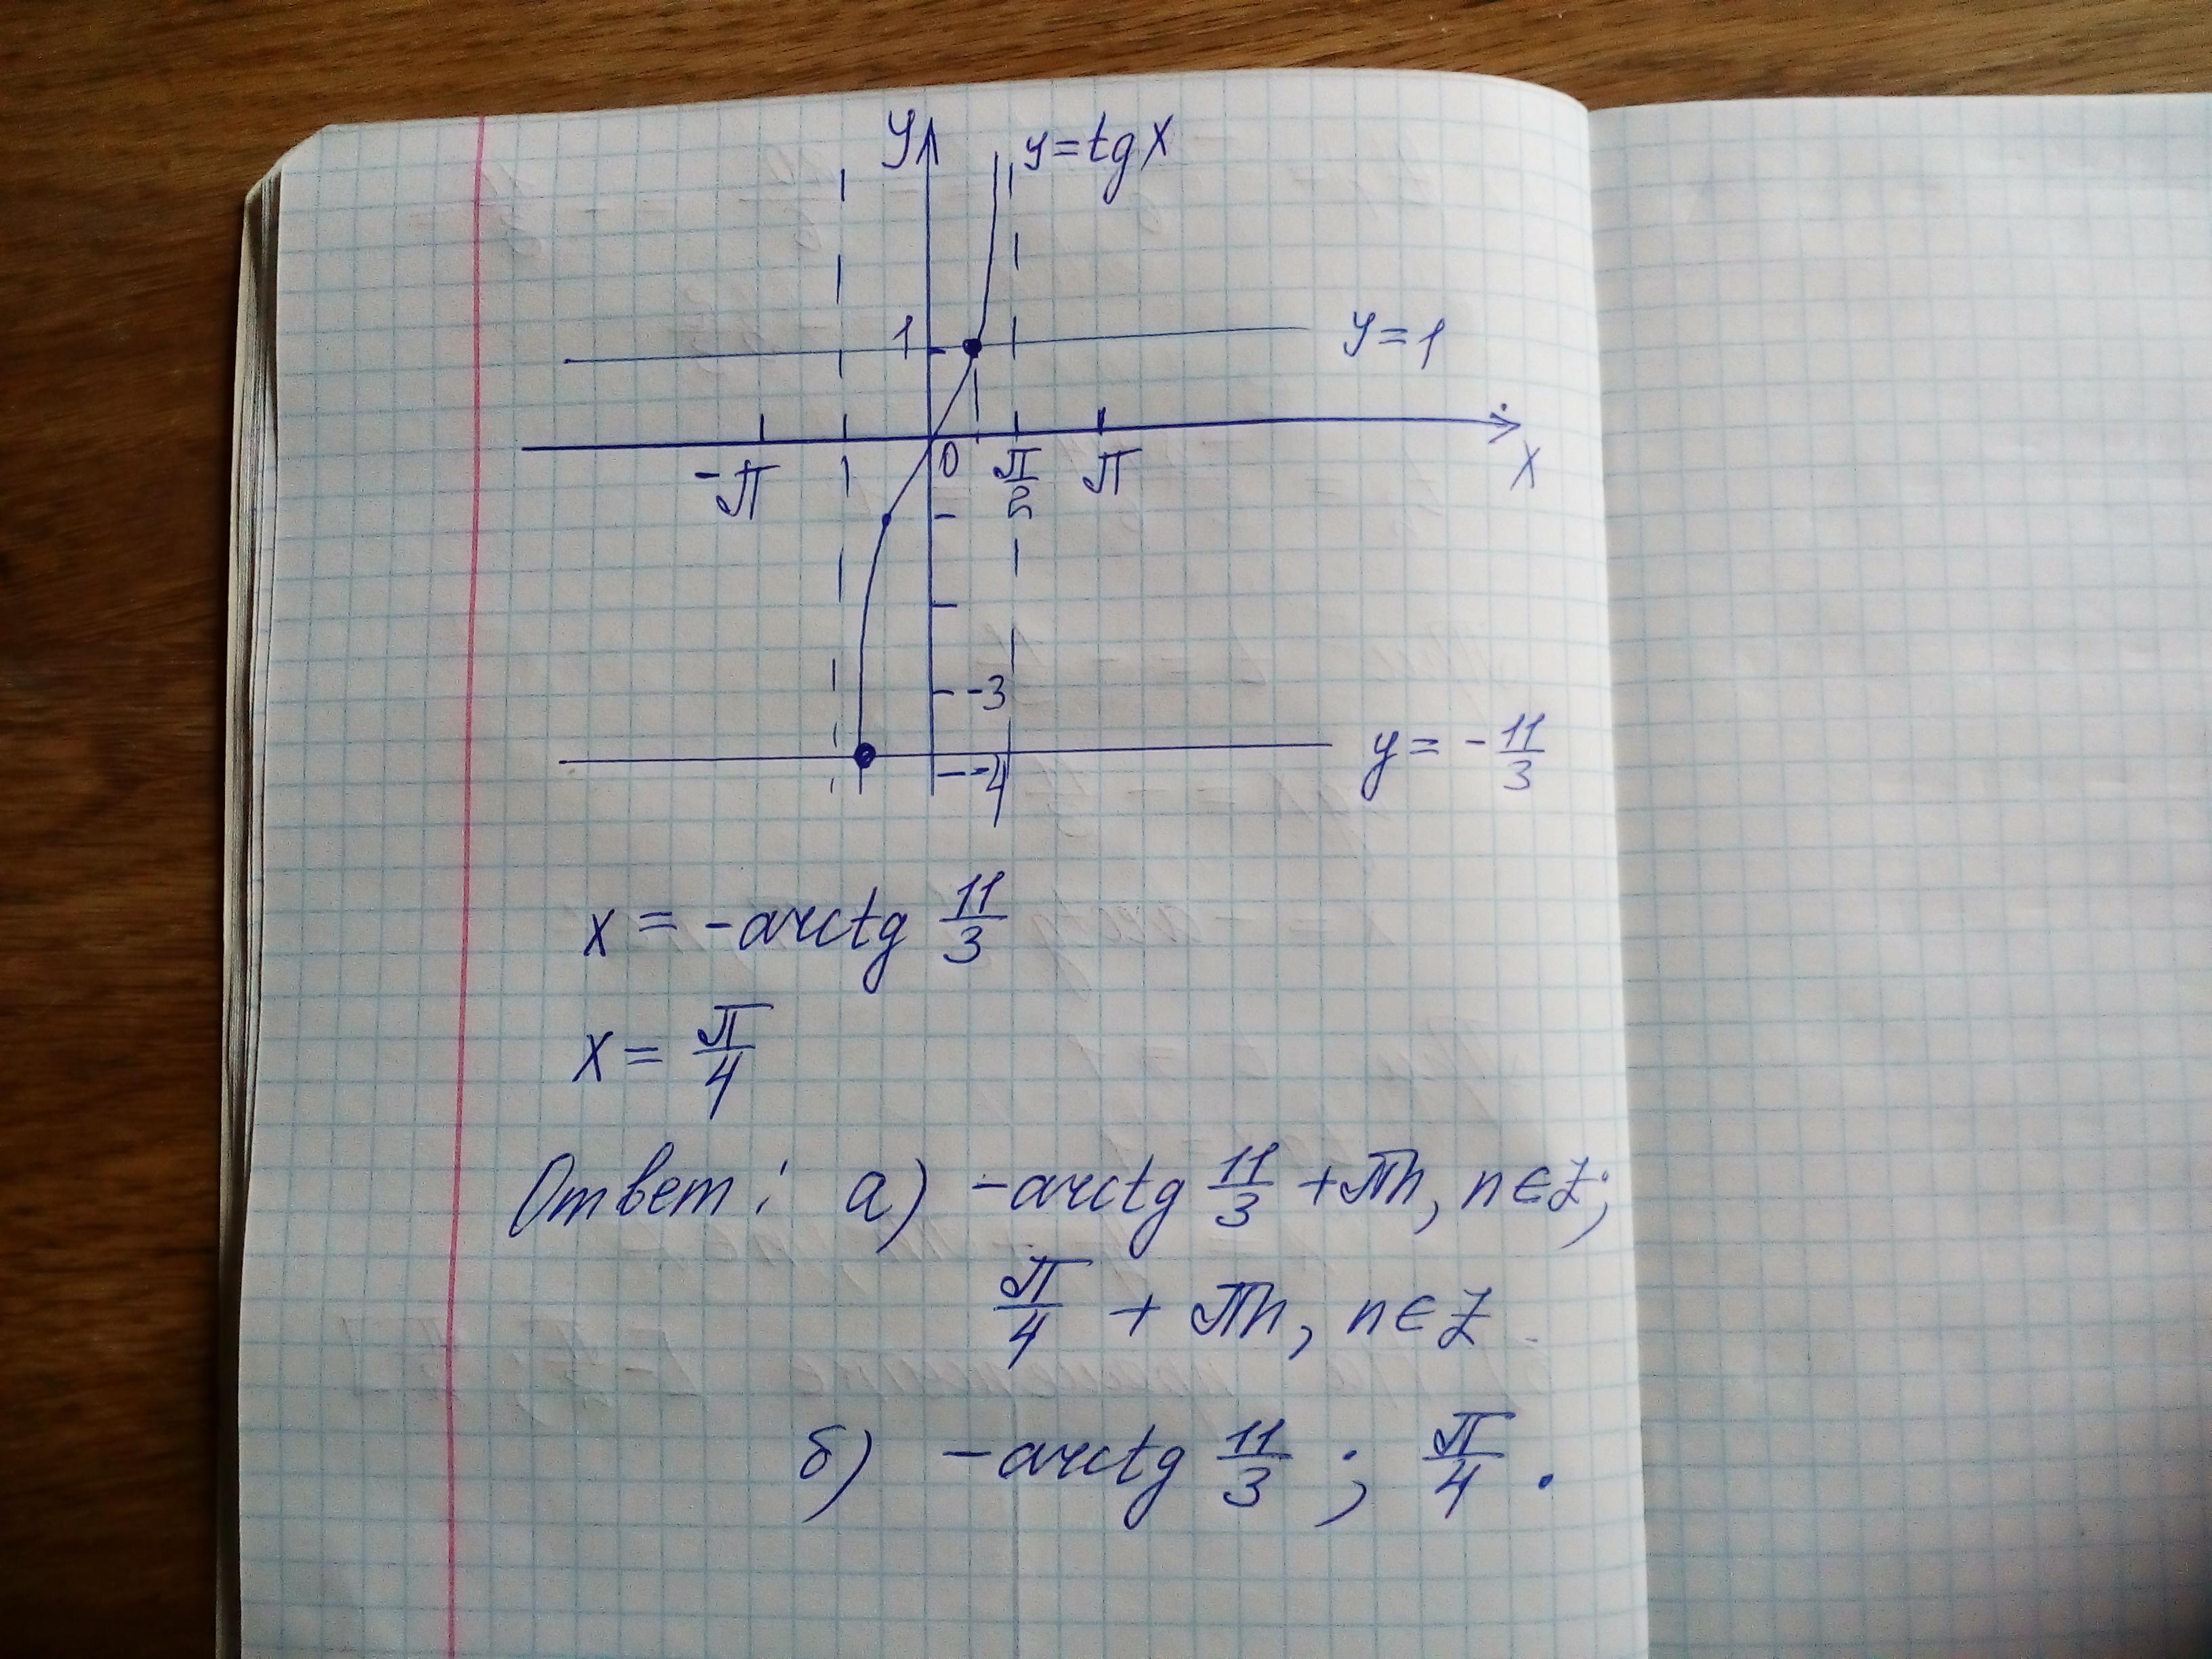 y y=tgx
1 y=1
-π 0 π/2 π x
-3
y=-11/3
-4
x = -arctg 11/3
x = π/4
Ответ: а) -arctg 11/3 + πn, n∈Z;
π/4 + πn, n∈Z
б) -arctg 11/3 ; π/4 .